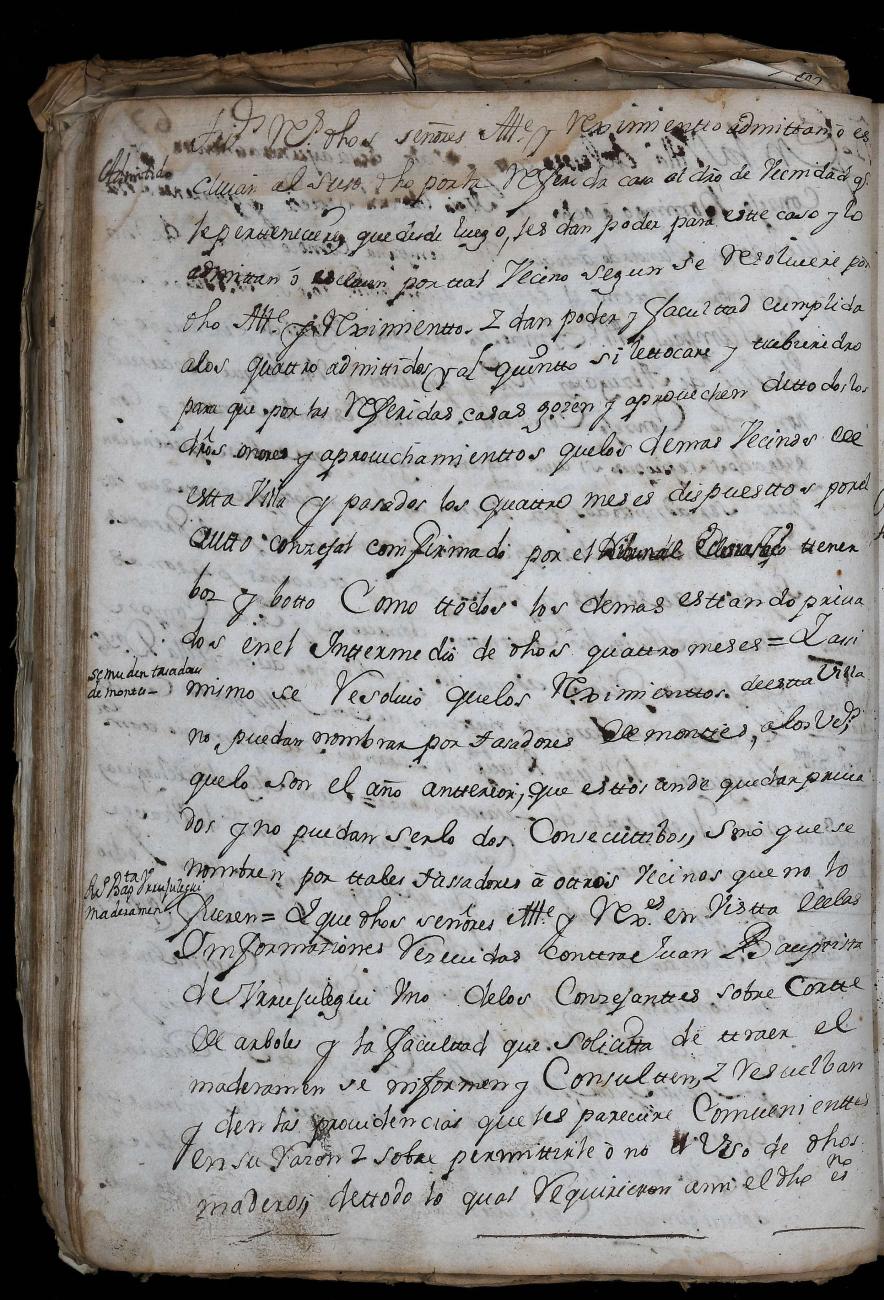 dhos señores Alle. y Reximientto admittan, ò es
Admitido
cluian al suso dho por la Referida casa al dro de Vecindad qe.
le perttenecere, que desde luego, les dan poder para estte caso y lo
admittan ó escluian por ttal Vecino segun se Resolviere por
dho Alle. y Reximientto. Z dan poder y faculttad cumplida
alos quattro admittidos, y al quintto si lettocare y tubiere dro
para que por las Referidas casas gozen y aprovechen dettodos los
dros onores y aprovechamienttos quelos demas Vecinos de
estta Villa y pasados los quattro meses dispuesttos porel
Autto conzejal comfirmado por el tienen
boz y botto Como ttodos los demas esttando priva
dos enel Inttermedio de dhos quattro meses = Z assi
se muden tasadores
de montes –
mismo se Resolvio quelos Reximienttos de estta Villa
no puedan nombrar por tasadores de monttes, a los
quelo son el año antterior, que esttos ande quedar priva
dos y no puedan serlo dos Consecuttibos, sino que se
nombren por ttales tassadores à ottros Vecinos que no lo
Bapta. Yrrusulegui
maderamen
fueren = Z que dhos señores Alle. y Rexes. en Vistta delas
Informaziones Rezevidas conttra Juan Bauptista
de Yrrusulegui Uno delos Conzejanttes sobre Cortte
de arboles y la facultad que solicitta de ttraer el
maderamen se informen y Consultten, Z Resuelban
y den las providencias que les pareciere Combenienttes
en su Razon Z sobre permittirle ò no el Uso de dhos
maderos, dettodo lo qual Requirieron ami el dho es no